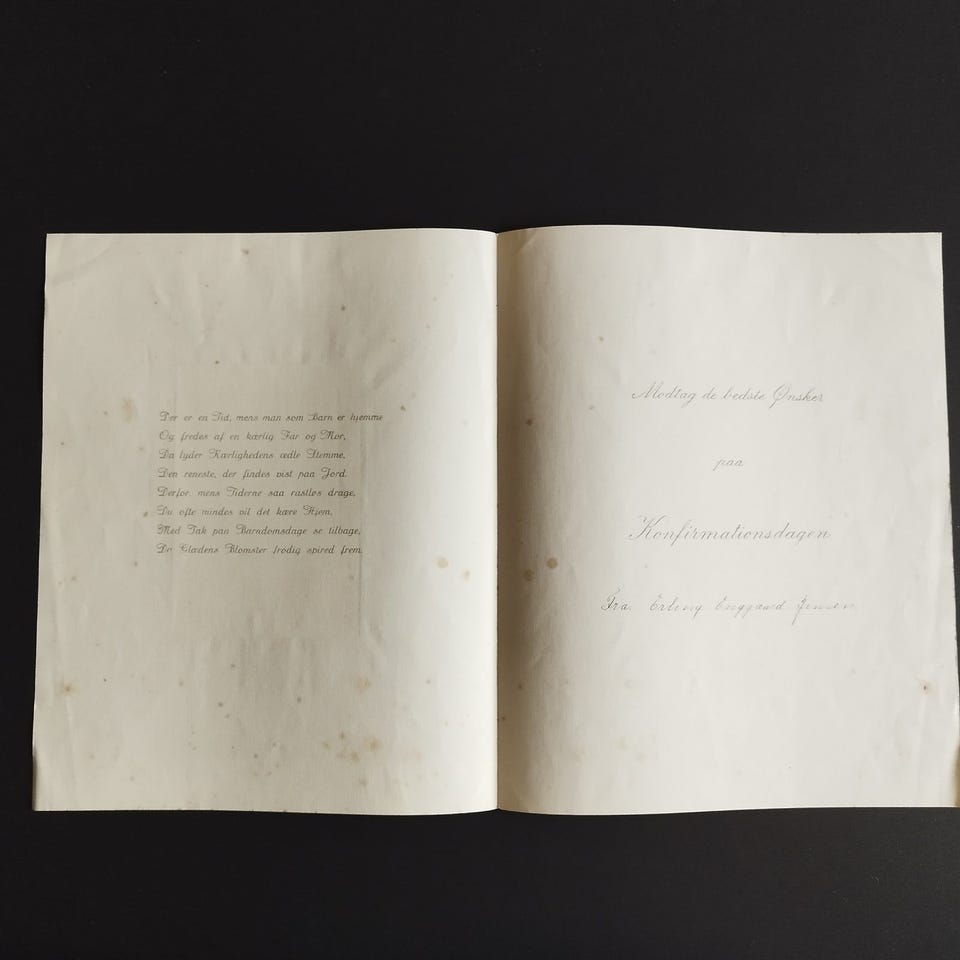 Der er en Tid, mens man som Barn er hjemme
Og fredes af en kærlig Far og Mor,
Da lyder Kærlighedens ædle Stemme,
Den reneste, der findes vist paa Jord.
Derfor, mens Tiderne saa rastløs drage,
Du ofte mindes vil det kære Hjem,
Med Tak paa Barndomsdage se tilbage,
Da Glædens Blomster frodig spired frem.
Modtag de bedste Ønsker
paa
Konfirmationsdagen
Fra Erling Enggaard Jensen